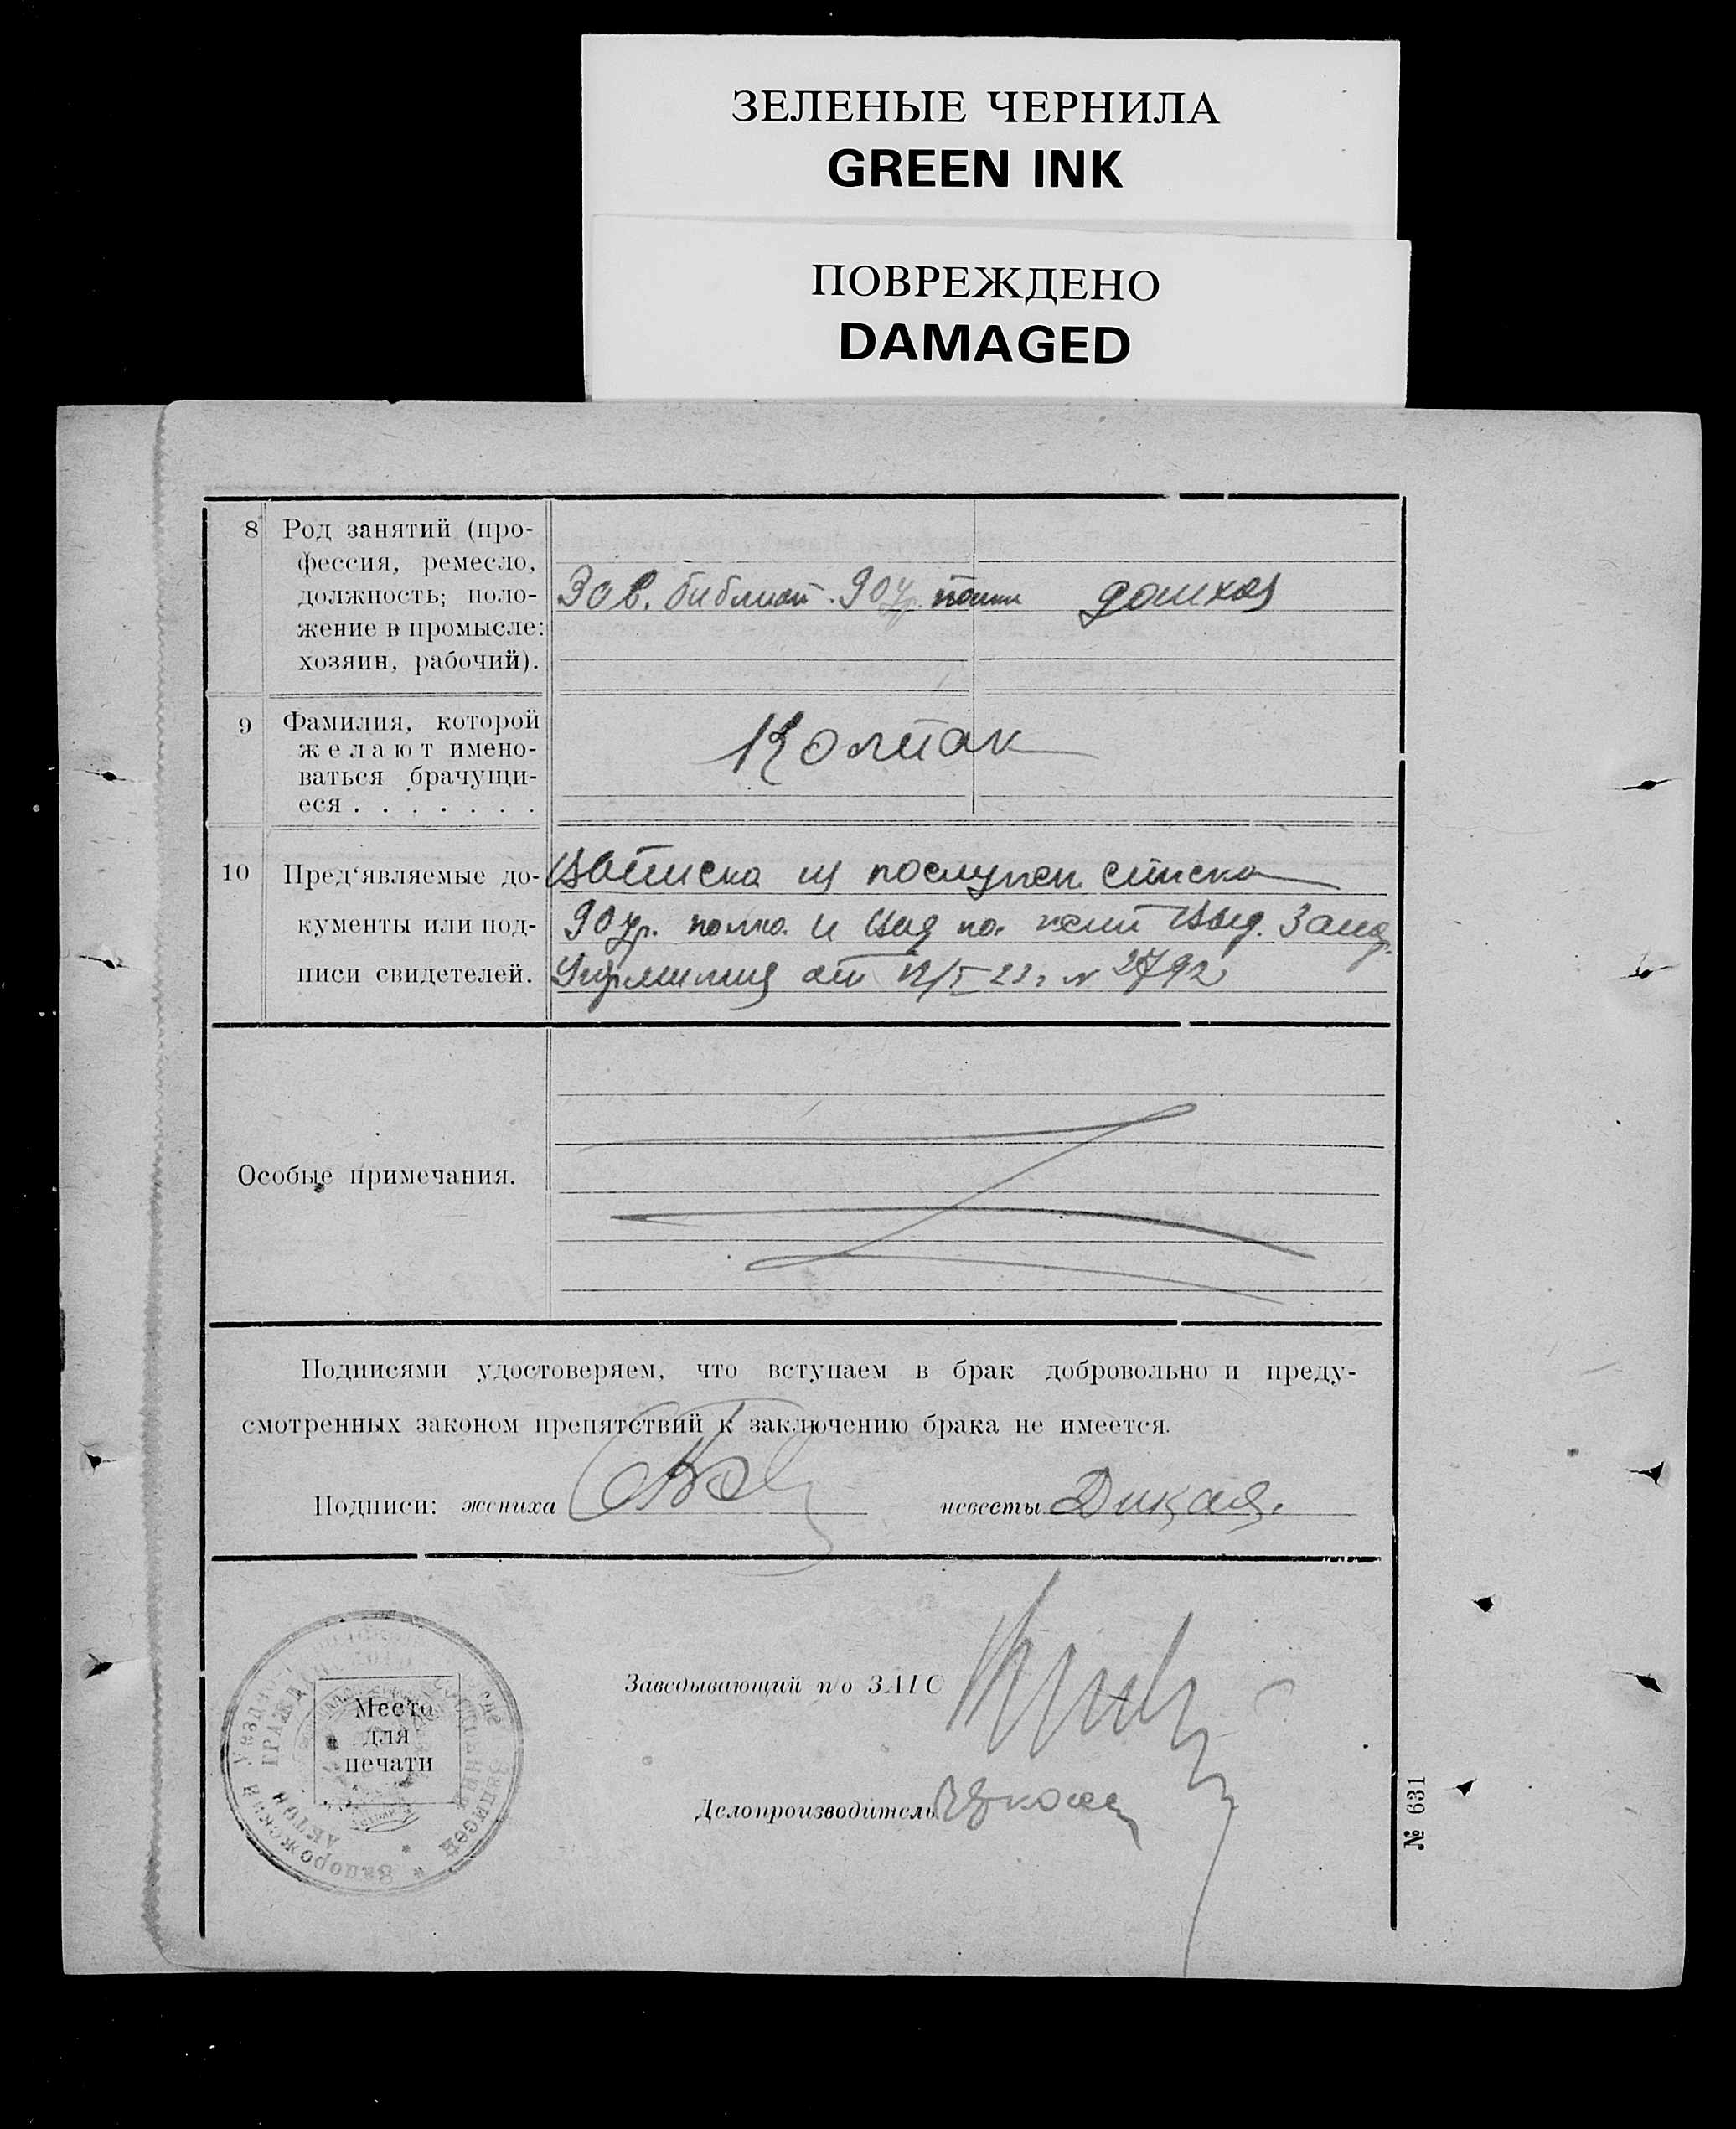 ЗЕЛЕНЫЕ ЧЕРНИЛА
GREEN INK
ПОВРЕЖДЕНО
DAMAGED
8 Род занятий (про-
фессия, ремесло,
должность; поло-
жение в промысле:
хозяин, рабочий).
Зав. библиот. 90 полка
9 Фамилия, которой
желают имено-
ваться брачущи-
еся . . . . . . .
Колпак
10 Пред‘являемые до-
кументы или под-
писи свидетелей.
Выписка из послужн списка
90 полка и выд.
от 12/V 22 г № 2792
Особые примечания.
Подписями удостоверяем, что вступаем в брак добровольно и преду-
смотренных законом препятствий к заключению брака не имеется.
Подписи: жениха невесты Дикая.
Место
для
печати
Заведывающий п/о ЗАГС
Делопроизводитель
№ 631